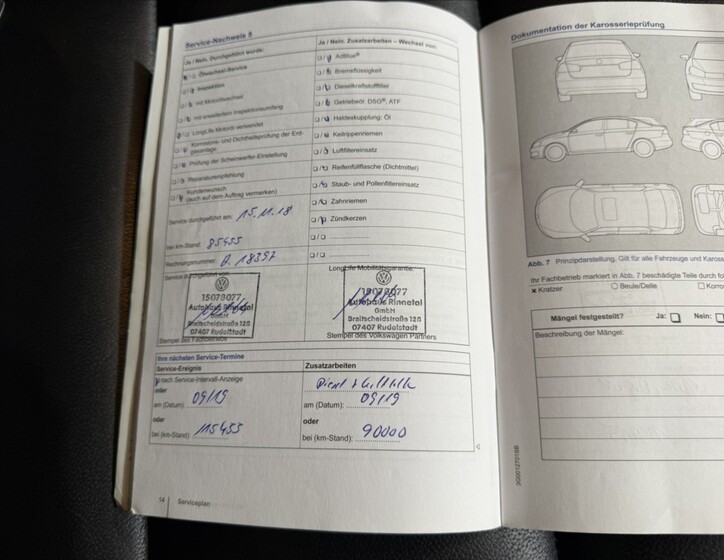 Service-Nachweis 5
Ja / Nein. Durchgeführt wurde:
Ölwechsel-Service
Inspektion
mit Motorölwechsel
mit erweitertem Inspektionsumfang
LongLife Motoröl verwendet
Korrosions- und Dichtheitsprüfung der Erdgasanlage
Prüfung der Scheinwerfer-Einstellung
Reparaturempfehlung
Kundenwunsch
(auch auf dem Auftrag vermerken)
Service durchgeführt am: 15.11.18
bei km-Stand: 85455
Rechnungsnummer:
Service durchgeführt von:
15079077
Autohaus Rinnetal
GmbH
Breitscheidstraße 128
07407 Rudolstadt
Stempel des Fachbetriebs
Ja / Nein. Zusatzarbeiten – Wechsel von:
AdBlue®
Bremsflüssigkeit
Dieselkraftstofffilter
Getriebeöl: DSG®, ATF
Haldexkupplung: Öl
Keilrippenriemen
Luftfiltereinsatz
Reifenfüllflasche (Dichtmittel)
Staub- und Pollenfiltereinsatz
Zahnriemen
Zündkerzen
LongLife Mobilitätsgarantie:
15079077
Autohaus Rinnetal
GmbH
Breitscheidstraße 128
07407 Rudolstadt
Stempel des Volkswagen Partners
Ihre nächsten Service-Termine
Service-Ereignis
nach Service-Intervall-Anzeige
oder
am (Datum): 09/19
oder
bei (km-Stand): 115455
Zusatzarbeiten
am (Datum): 09/19
oder
bei (km-Stand): 90000
14 Serviceplan
Dokumentation der Karosserieprüfung
Abb. 7 Prinzipdarstellung. Gilt für alle Fahrzeuge und
Ihr Fachbetrieb markiert in Abb. 7 beschädigte Teile durch
Kratzer
Beule/Delle
Mängel festgestellt? Ja: Nein:
Beschreibung der Mängel: